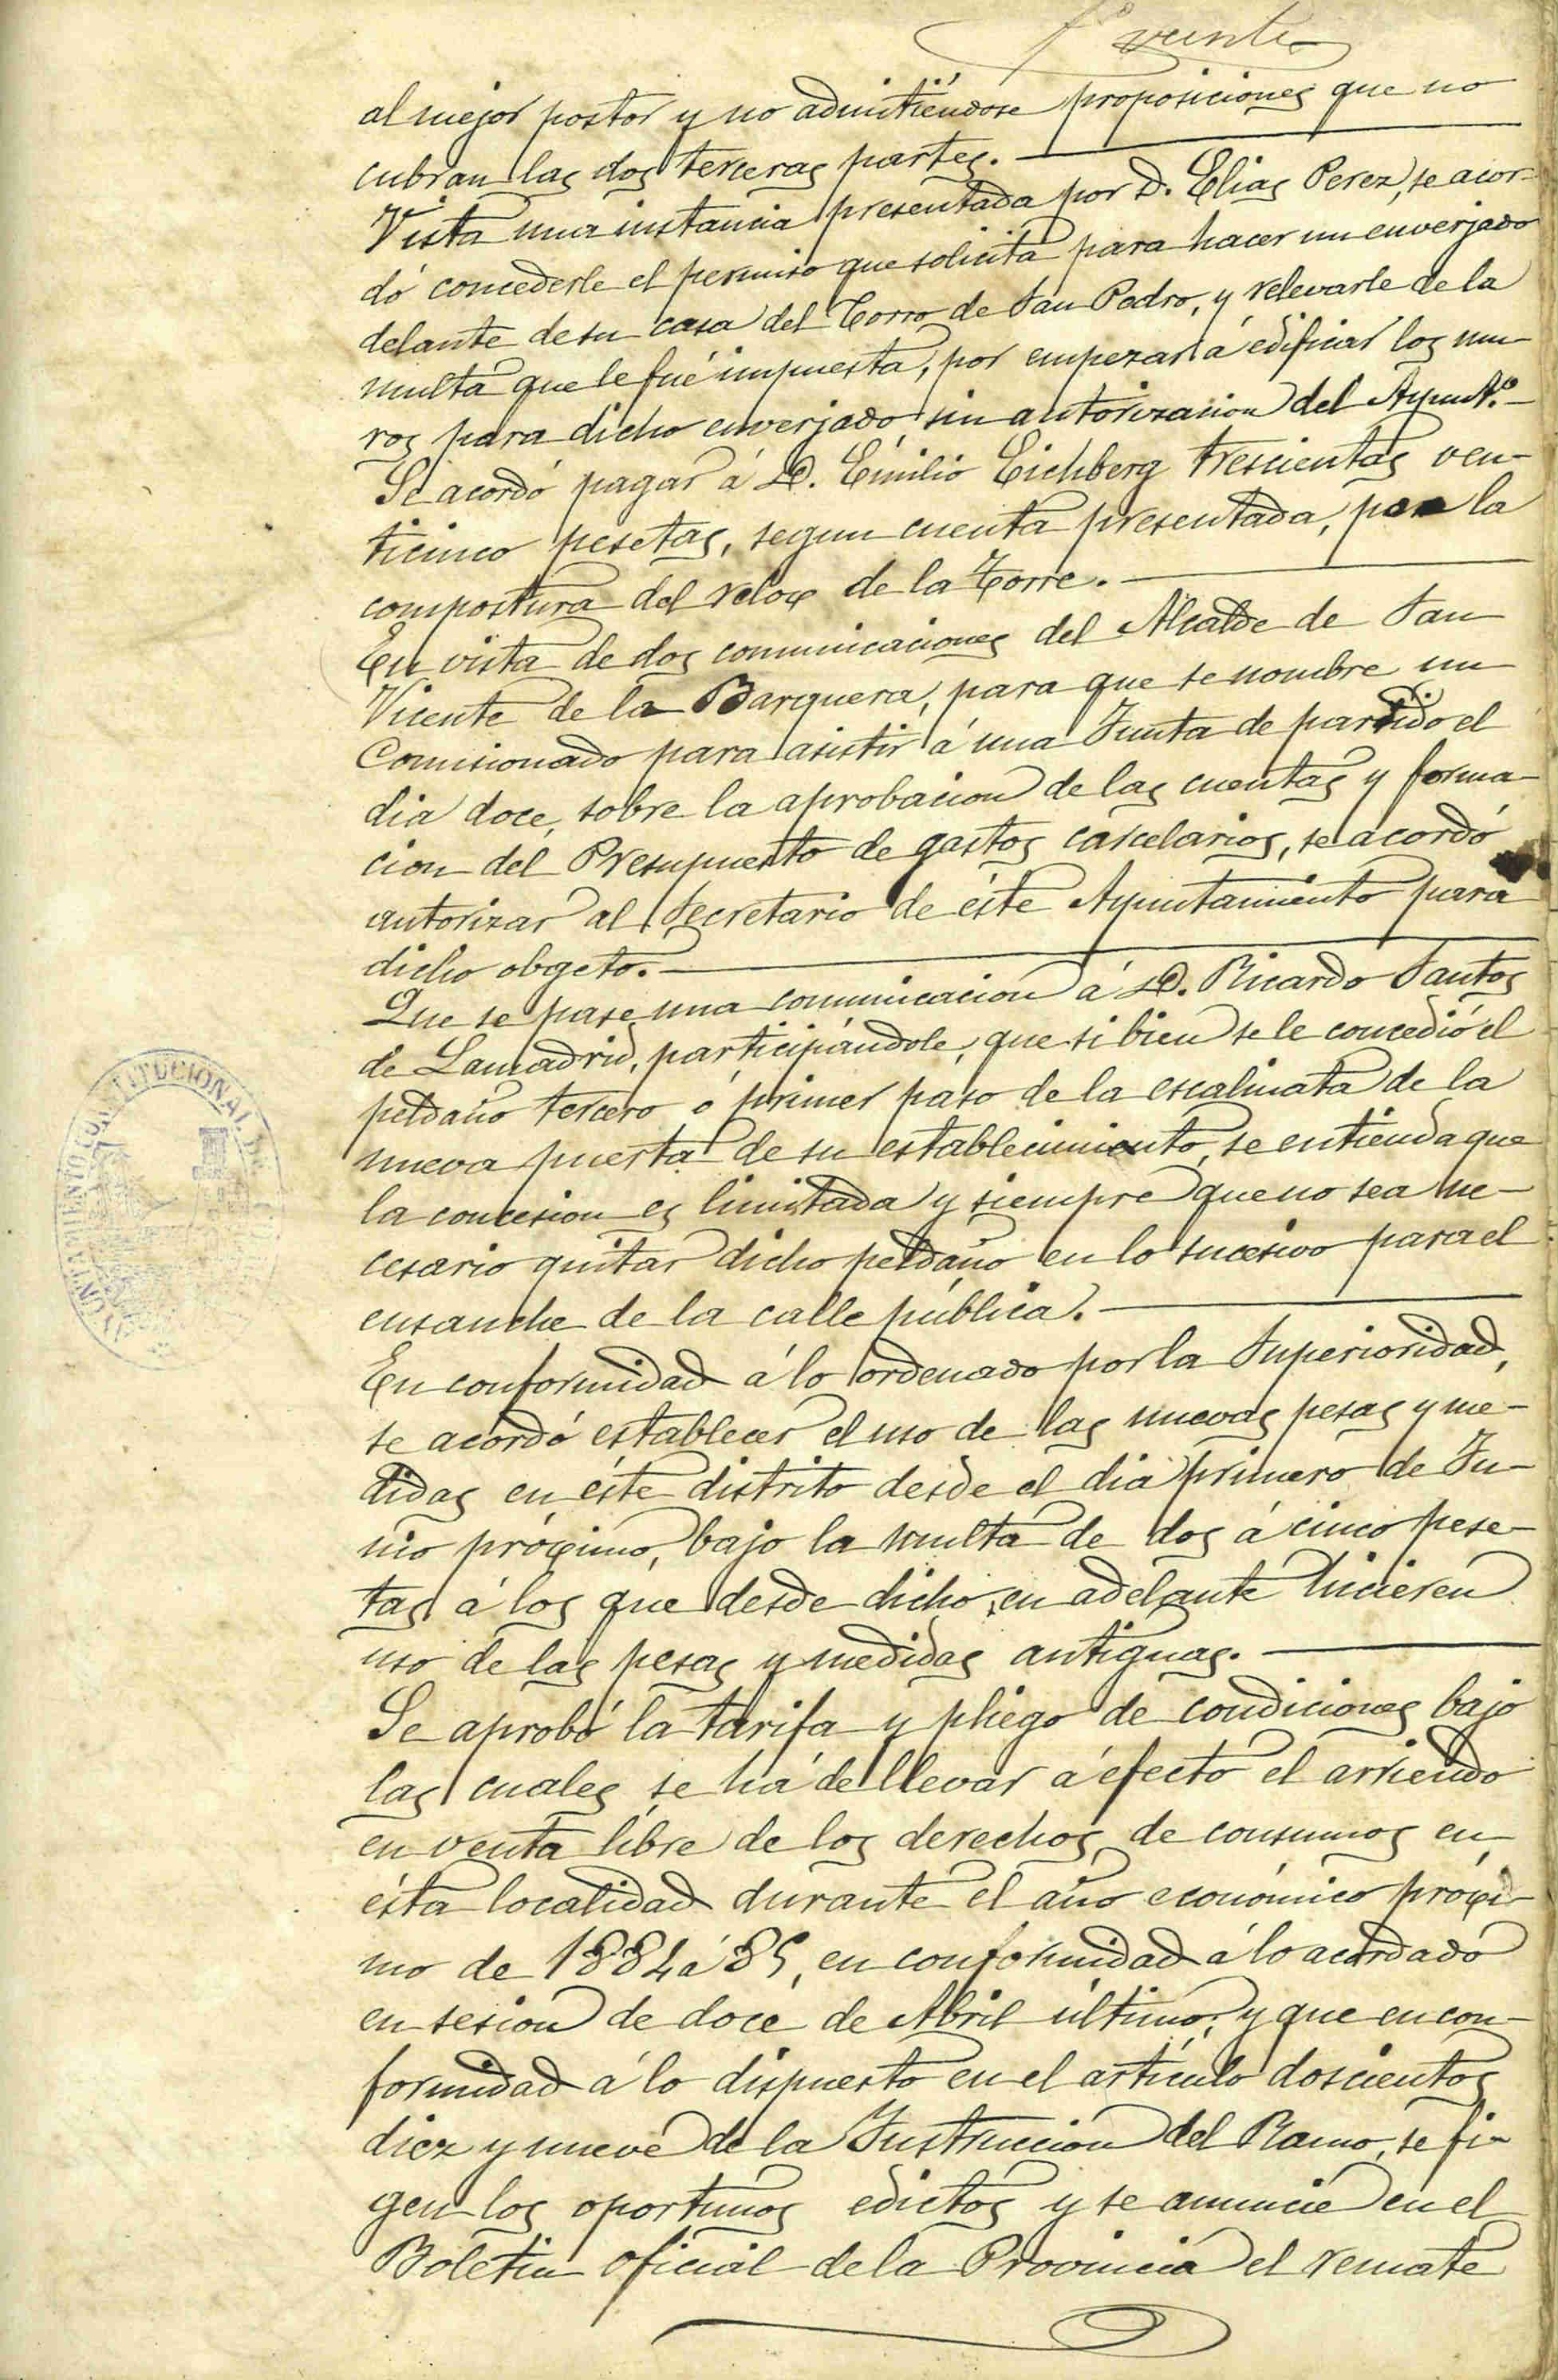 fº veinte
al mejor postor y no admitiéndose proposiciones que no
cubran las dos terceras partes.
Vista una instancia presentada por D. Elias Perez, se acor-
dó concederle el permiso que solicita para hacer un enverjado
delante de su casa del Corro de San Pedro, y relevarle de la
multa que le fué impuesta, por empezar á edificar los mu-
ros para dicho enverjado sin autorizacion del Ayuntº.
Se acordó pagar á D. Emilio Eichberg trescientas ven-
ticinco pesetas, segun cuenta presentada, por la
compostura del relox de la Torre.
En vista de dos comunicaciones del Alcalde de San
Vicente de la Barquera, para que se nombre un
Comisionado para asistir á una Junta de partido el
dia doce, sobre la aprobacion de las cuentas y forma-
cion del Presupuesto de gastos carcelarios, se acordó
autorizar al Secretario de éste Ayuntamiento para
dicho obgeto.
Que se pase una comunicacion á D. Ricardo Santos
de Lamadrid, participándole, que si bien se le concedió el
peldaño tercero ó primer paso de la escalinata de la
nueva puerta de su establecimiento, se entienda que
la concesion es limitada y siempre que no sea ne-
cesario quitar dicho peldaño en lo sucesivo para el
ensanche de la calle pública.
En conformidad á lo ordenado por la Superioridad,
se acordó establecer el uso de las nuevas pesas y me-
didas en éste distrito desde el dia primero de Ju-
nio próximo, bajo la multa de dos á cinco pese-
tas á los que desde dicho, en adelante hicieren
uso de las pesas y medidas antiguas.
Se aprobó la tarifa y pliego de condiciones bajo
las cuales se há de llevar á efecto el arriendo
en venta libre de los derechos de consumos en
ésta localidad durante el año económico próxi-
mo de 1884 á 85, en conformidad á lo acordado
en sesion de doce de Abril último; y que en con-
formidad á lo dispuesto en el artículo doscientos
diez y nueve de la Instruccion del Ramo, se fi-
gen los oportunos edictos y se anuncie en el
Boletin oficial de la Provincia el remate
AYUNTAMIENTO CONSTITUCIONAL DE